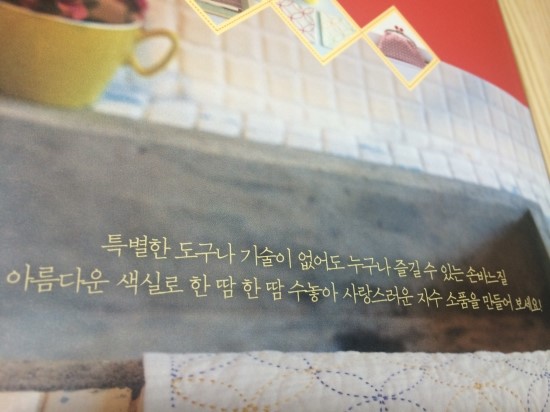 특별한 도구나 기술이 없어도 누구나 즐길 수 있는 손바느질
아름다운 색실로 한 땀 한 땀 수놓아 사랑스러운 자수 소품을 만들어 보세요!